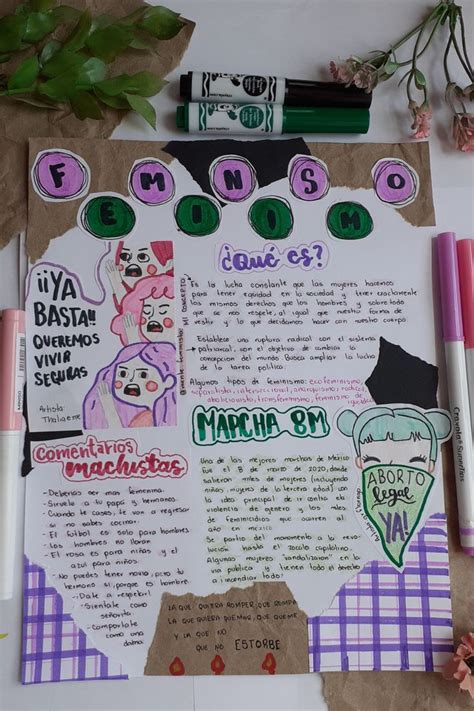 FEMINISMO
¿Qué es?
Es la lucha constante que las mujeres hacemos
para tener equidad en la sociedad y tener exactamente
los mismos derechos que los hombres y sobre todo
que se nos respete, al igual que nuestra forma de
vestir y lo que decidamos hacer con nuestro cuerpo.
Establece una ruptura radical con el sistema
patriarcal, con el objetivo de cambiar la
concepción del mundo. Busca ampliar la lucha
de la tarea política.
Algunos tipos de feminismo: ecofeminismo,
separatista, interseccional, anarquismo, radical
abolicionista, transfeminismo, feminismo de
¡¡YA
BASTA!!
QUEREMOS
VIVIR
SEGURAS
Artista:
MI CONCEPTO
Comentarios
machistas
- Deberías ser mas femenina.
- Sirvele a tu papá y hermanos.
- Cuando te cases, te van a regresar
si no sabes cocinar.
- El futbol es solo para hombres
- Los hombres no lloran
- El rosa es para niñas y el
azul para niños.
- No puedes tener novia, pero tu
hermano si, porque es hombre.
- ¡Date a respetar!
- Siéntate como
señorita
- Comportate
como una
dama
MARCHA 8M
Una de las mejores marchas de México
fue el 8 de marzo de 2020, donde
salieron miles de mujeres (incluyendo
niñas y mujeres de la tercera edad) con
la idea principal de ir contra la
violencia de género y los miles
de feminicidios que ocurren al
año en méxico
partio del monumento a la revo-
lución hasta el zocalo capitalino.
Algunas mujeres "vandalizaron" en la
via publica y tienen todo el derecho
a incendiar todo!
ABORTO
legal
YA!
LA QUE QUIERA ROMPER, QUE ROMPA
LA QUE QUIERA QUEMAR, QUE QUEME
Y LA QUE NO
QUE NO ESTORBE
Crayola